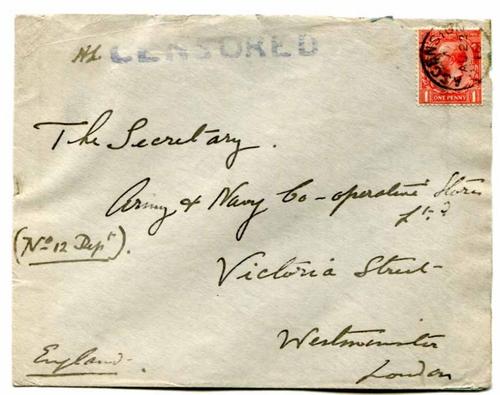 CENSORED
ASCENSION
ONE PENNY
The Secretary.
Army & Navy Co-operative Stores
Ltd
(No 12 Dept).
Victoria Street
Westminster
England
London